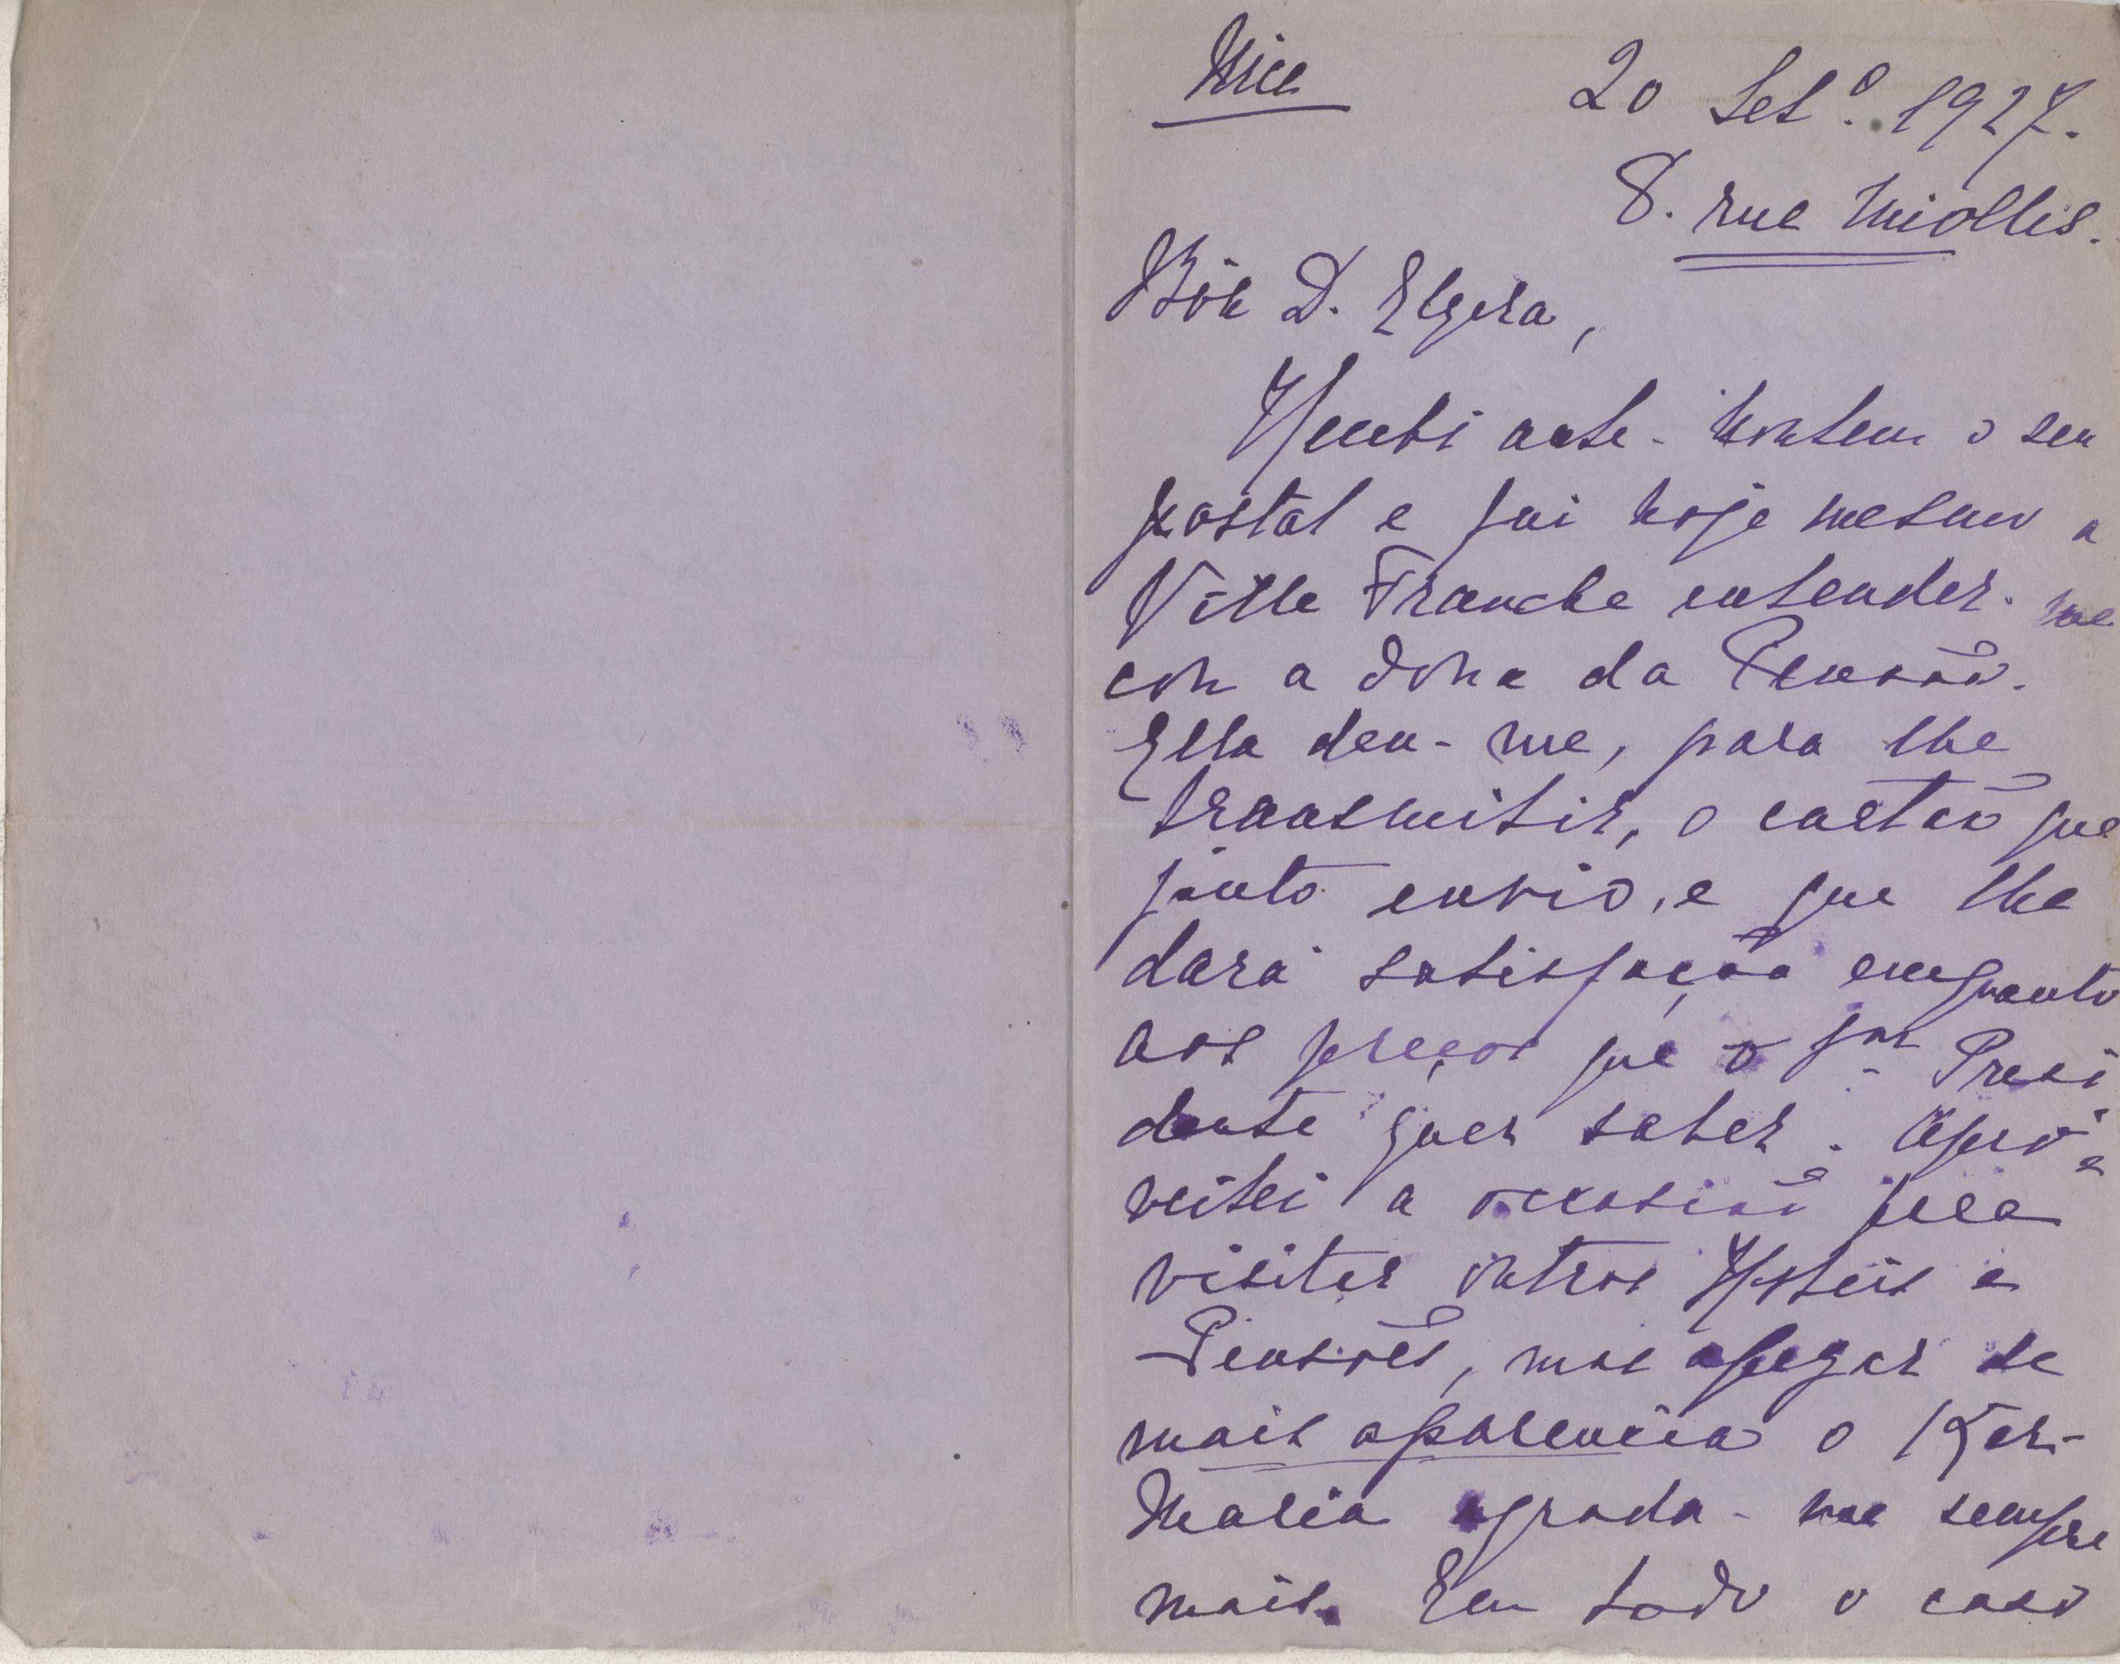 Nice 20 Set.º 1927.
8. rue Miollis.
Bôa D. Elzira,
Recebi ante-hontem o seu
postal e fui hoje mesmo a
Ville Franche entender-me
com a dona da Pensão.
Ella deu-me, para lhe
transmitir, o cartão que
junto envio, e que lhe
dará satisfação emquanto
aos preços que o Snr Presi
dente quer saber. Apro-
veitei a occasião pᵃ
visitar outros Hoteis e
Pensões, mas apezar de
mais aparencia o Ker-
Maria agrada-me sempre
mais. Em todo o caso